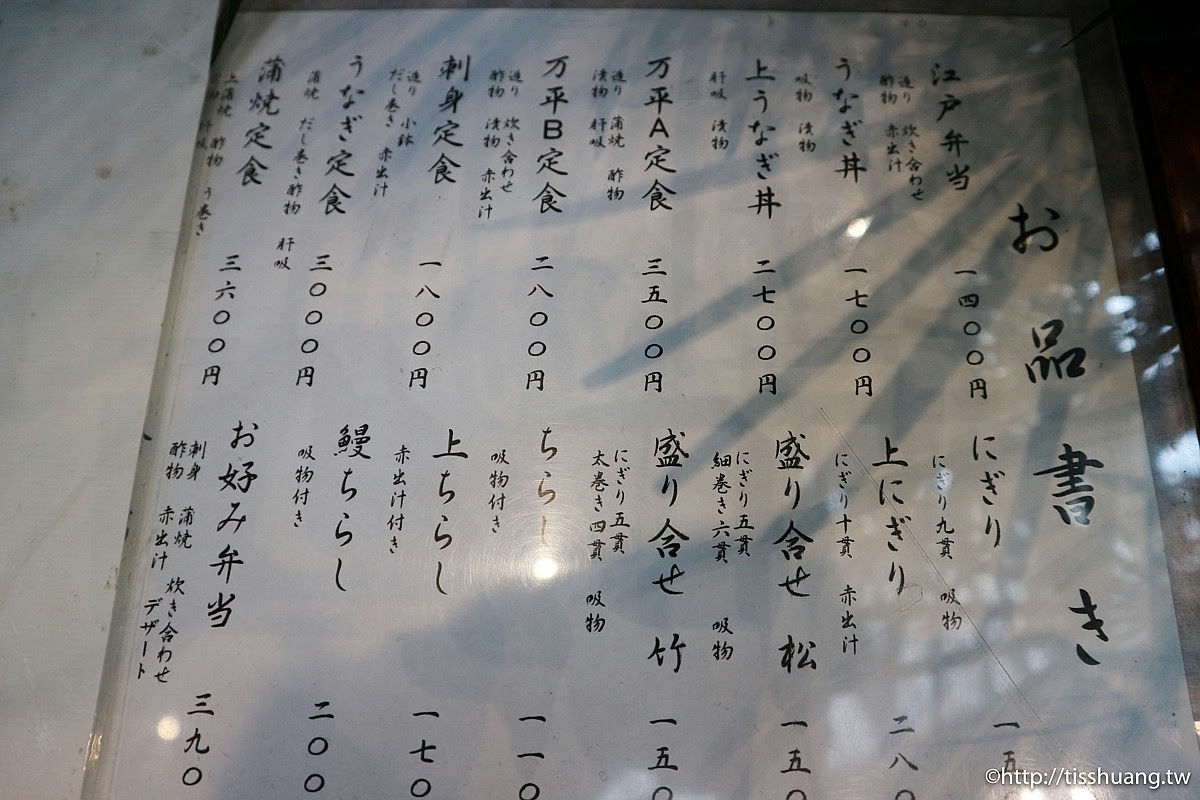 お品書き
江戸弁当
造り 炊き合わせ
酢物 赤出汁
一四〇〇円
うなぎ丼
吸物 漬物
一七〇〇円
上うなぎ丼
肝吸 漬物
二七〇〇円
万平A定食
造り 蒲焼 酢物
漬物 肝吸
三五〇〇円
万平B定食
造り 炊き合わせ
酢物 漬物 赤出汁
二八〇〇円
刺身定食
造り 小鉢
だし巻き 赤出汁
一八〇〇円
うなぎ定食
蒲焼 だし巻き 酢物 肝吸
三〇〇〇円
蒲焼定食
上蒲焼 酢物 う巻き
肝吸
三六〇〇円
にぎり
にぎり九貫 吸物
一五
上にぎり
にぎり十貫 赤出汁
二八〇
盛り合せ 松
にぎり五貫
細巻き六貫 吸物
一五〇
盛り合せ 竹
にぎり五貫
太巻き四貫 吸物
一五〇
ちらし
吸物付き
一一〇
上ちらし
赤出汁付き
一七〇
鰻ちらし
吸物付き
二〇〇
お好み弁当
刺身 蒲焼 炊き合わせ
酢物 赤出汁 デザート
三九〇
©http://tisshuang.tw